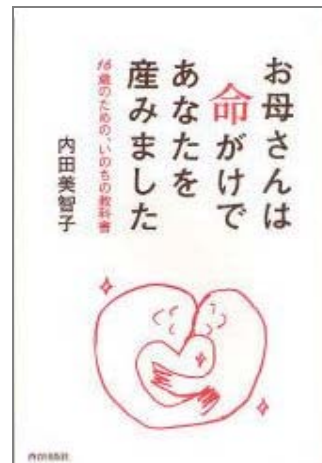 お母さんは
命がけで
あなたを
産みました
16歳のための、いのちの教科書
内田美智子
青春出版社